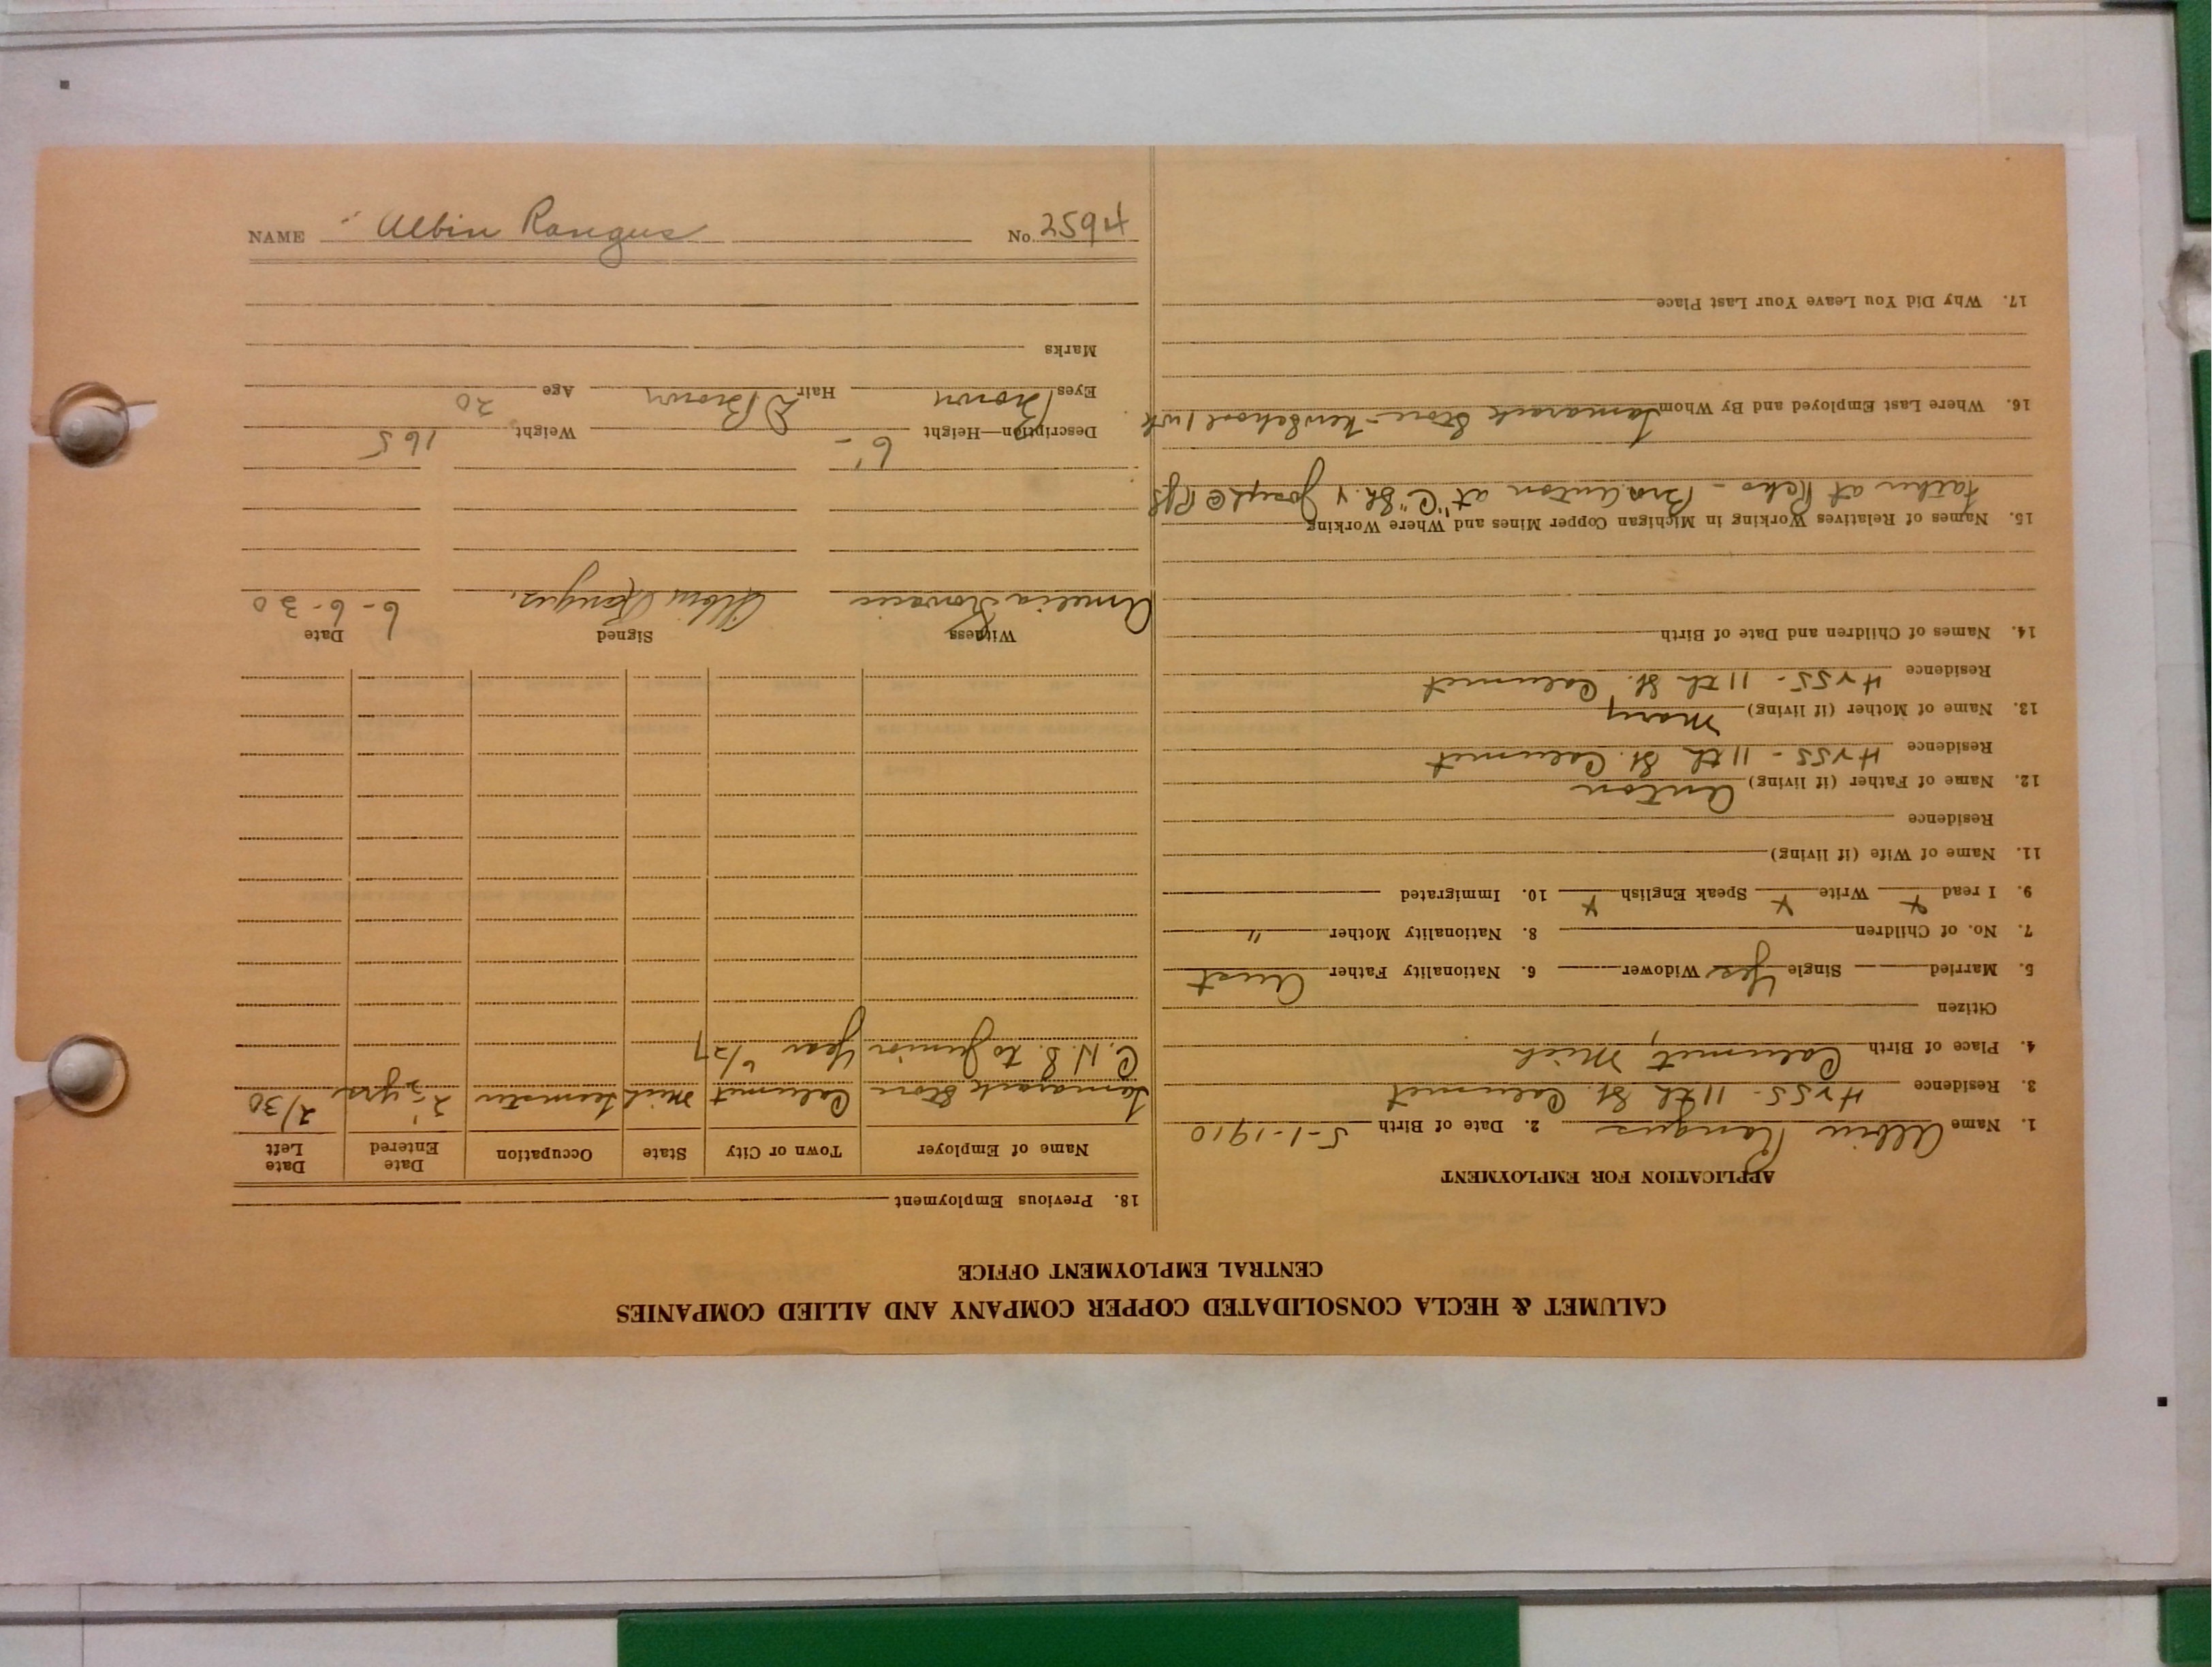 NAME Albin Rangus No. 2594
CALUMET & HECLA CONSOLIDATED COPPER COMPANY AND ALLIED COMPANIES
CENTRAL EMPLOYMENT OFFICE
APPLICATION FOR EMPLOYMENT
1. Name Albin Rangus 2. Date of Birth 5-1-1910
3. Residence H 55 - 11th St. Calumet
4. Place of Birth Calumet, Mich
Citizen
5. Married Single Yes Widower 6. Nationality Father Aust
7. No. of Children 8. Nationality Mother "
9. I read x Write x Speak English x 10. Immigrated
11. Name of Wife (if living)
Residence
12. Name of Father (if living) Anton
Residence H 55 - 11th St. Calumet
13. Name of Mother (if living) Mary
Residence H 55 - 11th St. Calumet
14. Names of Children and Date of Birth
15. Names of Relatives Working in Michigan Copper Mines and Where Working
Father at - Bro. Anton at "C" Sh. & Joseph @
16. Where Last Employed and By Whom Tamarack Store - 1 wk
17. Why Did You Leave Your Last Place
18. Previous Employment
Name of Employer Town or City State Occupation Date Entered Date Left
Tamarack Store Calumet Mich teamster 2½ yrs 2/30
C. H. S. to Junior Year 6/27
Witness Signed Date
Amelia Albin Rangus. 6-6-30
Description—Height 6'- Weight 165
Eyes Brown Hair D Brown Age 20
Marks